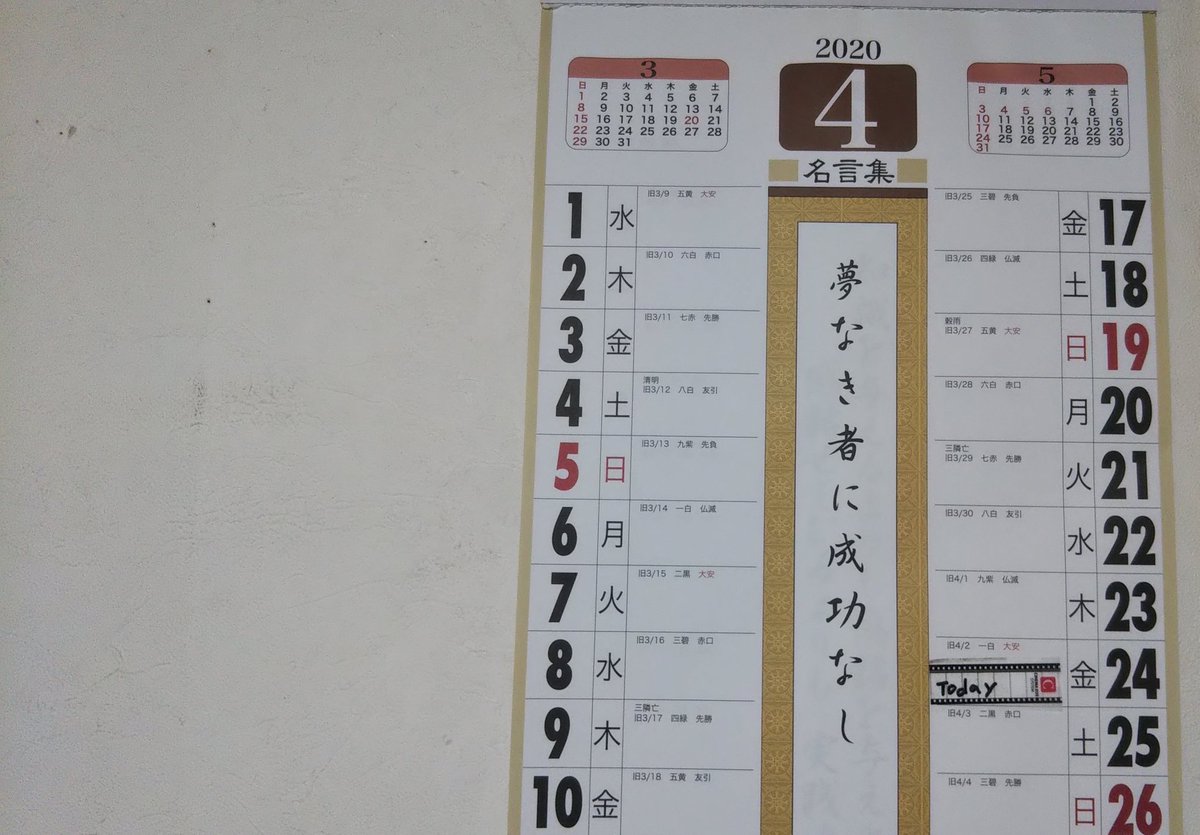 2020
3
日 月 火 水 木 金 土
1 2 3 4 5 6 7
8 9 10 11 12 13 14
15 16 17 18 19 20 21
22 23 24 25 26 27 28
29 30 31
4
5
日 月 火 水 木 金 土
1 2
3 4 5 6 7 8 9
10 11 12 13 14 15 16
17 18 19 20 21 22 23
24 25 26 27 28 29 30
31
名言集
夢なき者に成功なし
1 水 旧3/9 五黄 大安
2 木 旧3/10 六白 赤口
3 金 旧3/11 七赤 先勝
清明
4 土 旧3/12 八白 友引
5 日 旧3/13 九紫 先負
6 月 旧3/14 一白 仏滅
7 火 旧3/15 二黒 大安
8 水 旧3/16 三碧 赤口
三隣亡
9 木 旧3/17 四緑 先勝
10 金 旧3/18 五黄 友引
旧3/25 三碧 先負 金 17
旧3/26 四緑 仏滅 土 18
穀雨
旧3/27 五黄 大安 日 19
旧3/28 六白 赤口 月 20
三隣亡
旧3/29 七赤 先勝 火 21
旧3/30 八白 友引 水 22
旧4/1 九紫 仏滅 木 23
旧4/2 一白 大安 金 24
Today
旧4/3 二黒 赤口 土 25
旧4/4 三碧 先勝 日 26